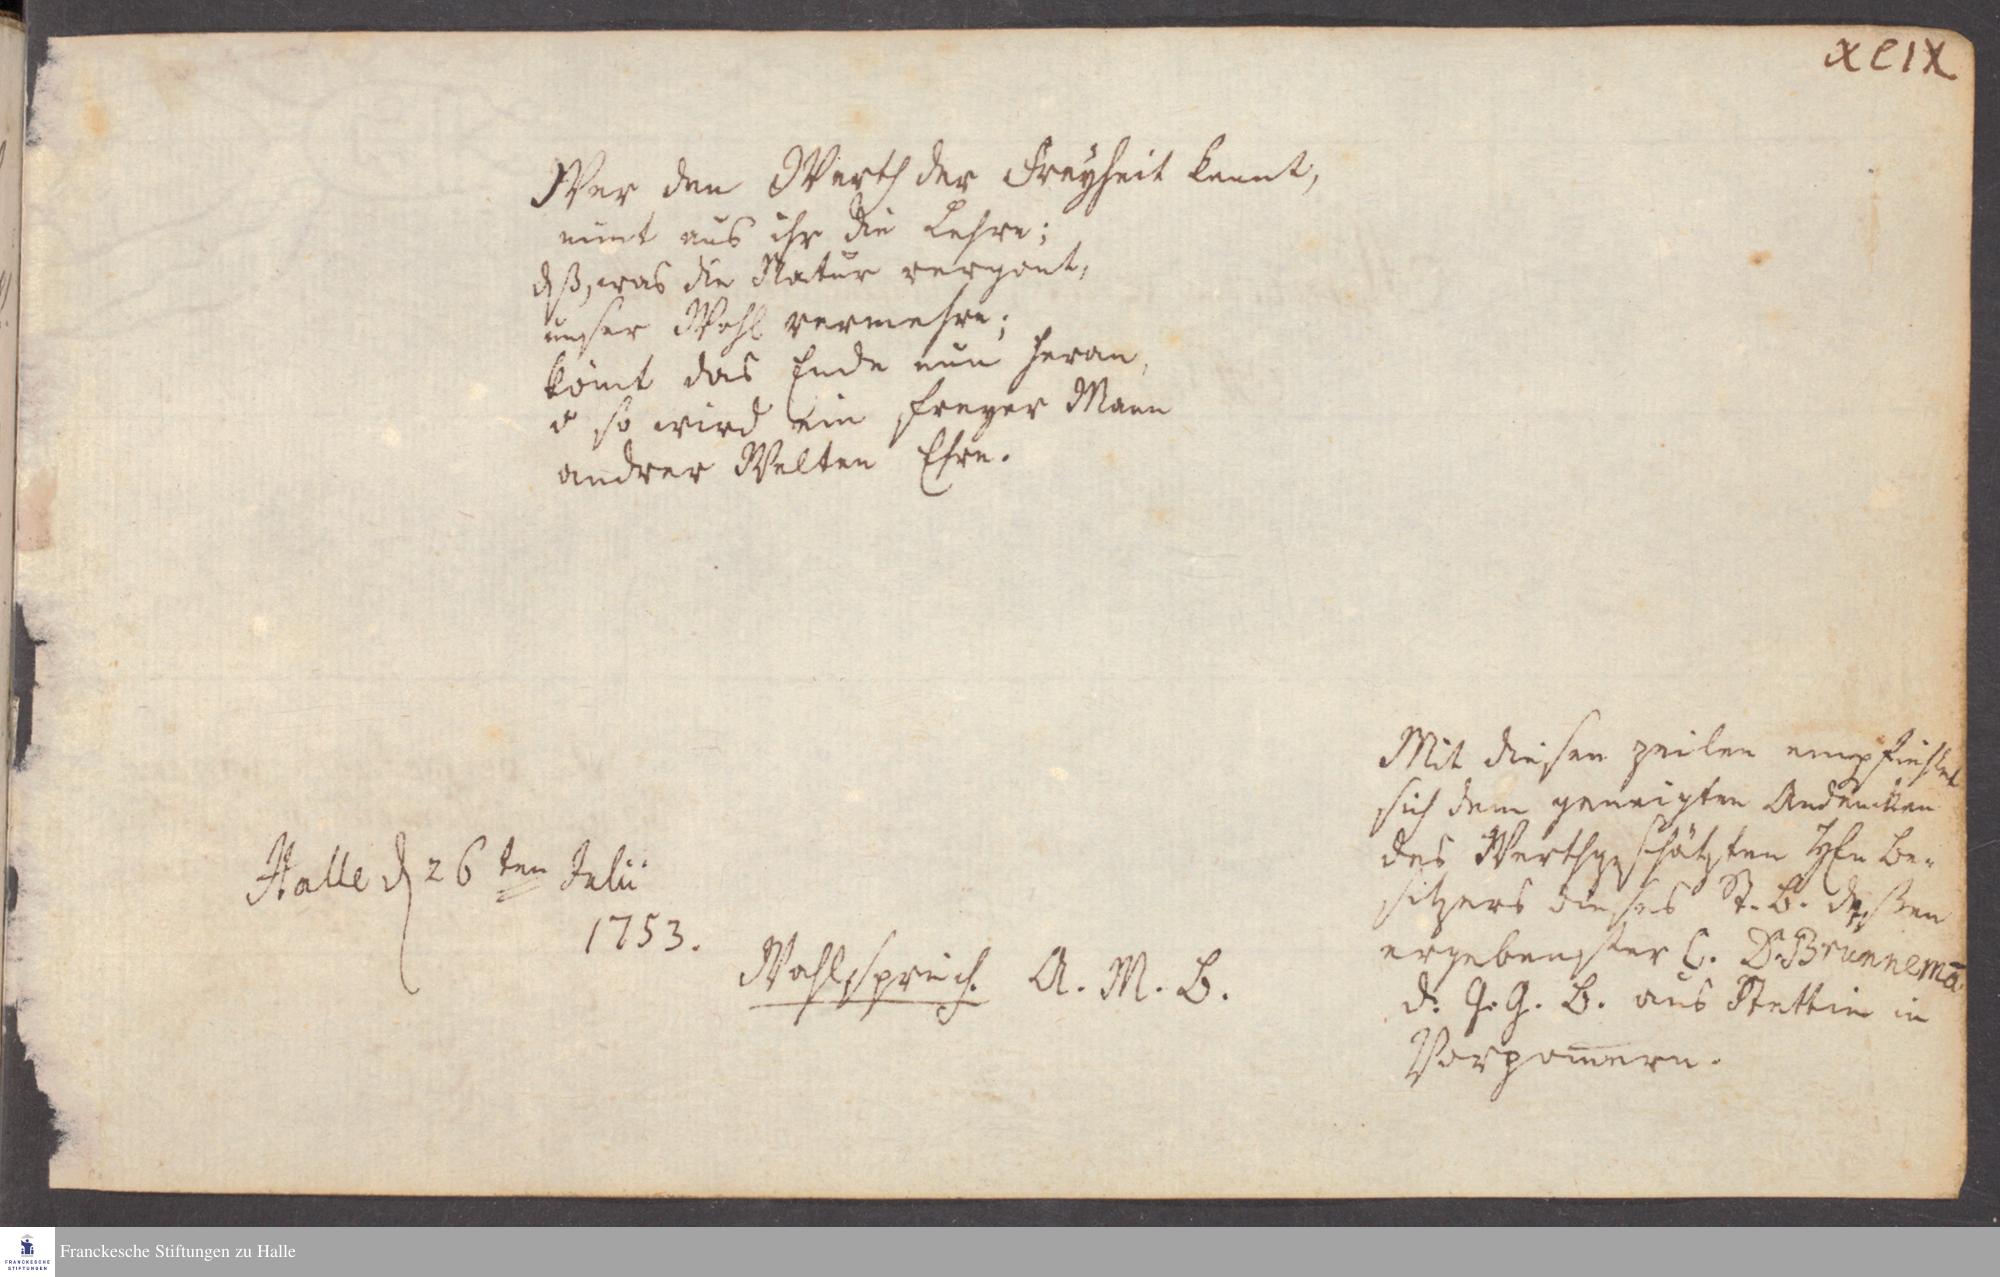 XCIX
Wer den Werth der Freyheit kennt,
nim̄t aus ihr die Lehre;
daß, was die Natur vergönt,
unser Wohl vermehre;
kom̄t das Ende nun heran,
o so wird ein freyer Mann
andrer Welten Ehre.
Halle d 26 ten Julii
1753.
Wahlspruch. A. M. B.
Mit diesen Zeilen empfiehlet
sich dem geneigten Andencken
des Werthgeschätzten HEn Be-
sitzers dieses St. B. deßen
ergebenster C. D. Brunnemā
d. G. G. B. aus Stettin in
Vorpom̄ern.
Franckesche Stiftungen zu Halle
FRANCKESCHE
STIFTUNGEN